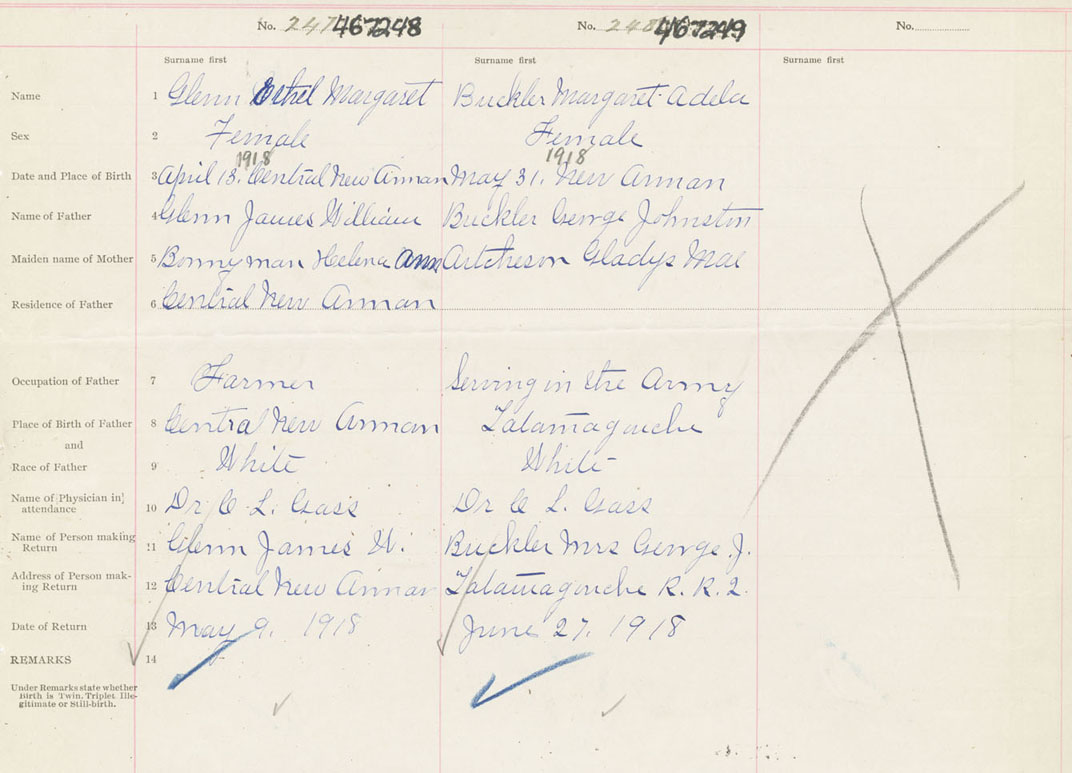 No. 247 467248 No. 248 467249 No.
Surname first Surname first Surname first
Name 1 Glenn Ethel Margaret Buckler Margaret Adela
Sex 2 Female Female
1918 1918
Date and Place of Birth 3 April 13. Central New Annan May 31. New Annan
Name of Father 4 Glenn James William Buckler George Johnston
Maiden name of Mother 5 Bonnyman Helena Ann Aitcheson Gladys Mae
Residence of Father 6 Central New Annan
Occupation of Father 7 Farmer Serving in the Army
Place of Birth of Father 8 Central New Annan Tatamagouche
and
Race of Father 9 White White
Name of Physician in attendance 10 Dr C. L. Gass Dr C L. Gass
Name of Person making Return 11 Glenn James W. Buckler Mrs George J.
Address of Person mak-
ing Return 12 Central New Annan Tatamagouche R. R. 2.
Date of Return 13 May 9. 1918 June 27. 1918
REMARKS 14
Under Remarks state whether
Birth is Twin, Triplet Ille-
gitimate or Still-birth.